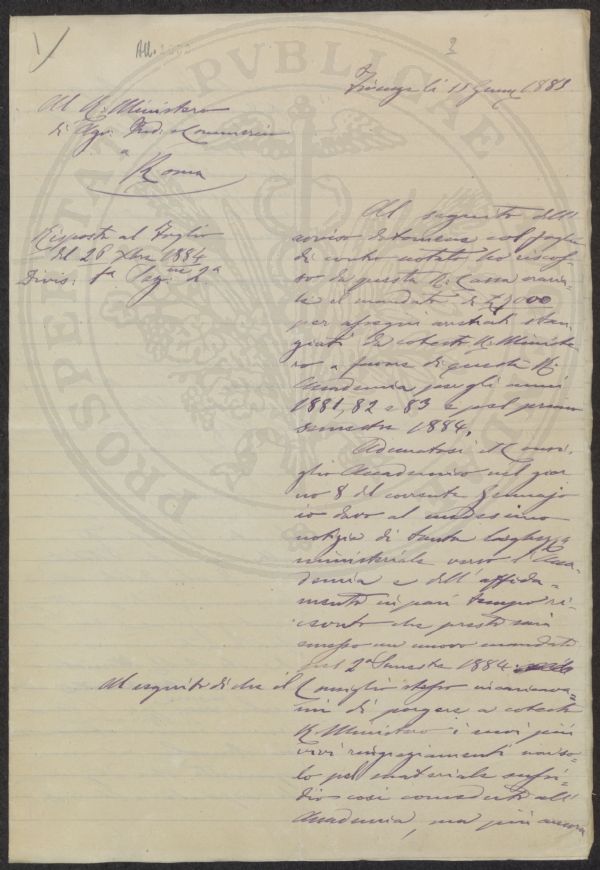 All. 2000
3
Firenze li 11 Genn 1885
Al R. Ministero
di Agr. Ind. e Commercio
a
Roma
Risposta al Foglio
del 26 Xbre 1884
Divis. 1a Sez.ne 2a
Al seguito dell'
avviso
di contro notato ho riscos-
so da questa R. Cassa
il mandato di £
per assegni arretrati stan-
ziati da cotesto R. Ministe-
ro a favore di questa R.
Accademia per gli anni
1881, 82 e 83 e pel primo
semestre 1884.
Adunatosi il Consi-
glio Accademico nel gior-
no 8 del corrente Gennajo
io davo al medesimo
notizia di tanta larghezza
ministeriale verso l'Acca-
demia e dell'affida-
mento in pari tempo ri-
cevuto che presto sarà
emesso un nuovo mandato
pel 2o Semestre 1884
Al seguito di che il Consiglio stesso incaricava-
mi di porgere a cotesto
R. Ministero i suoi più
vivi ringraziamenti non so-
lo pel materiale sussi-
dio così concesso all'
Accademia, ma più ancora
PROSPERITAS PVBLICAE